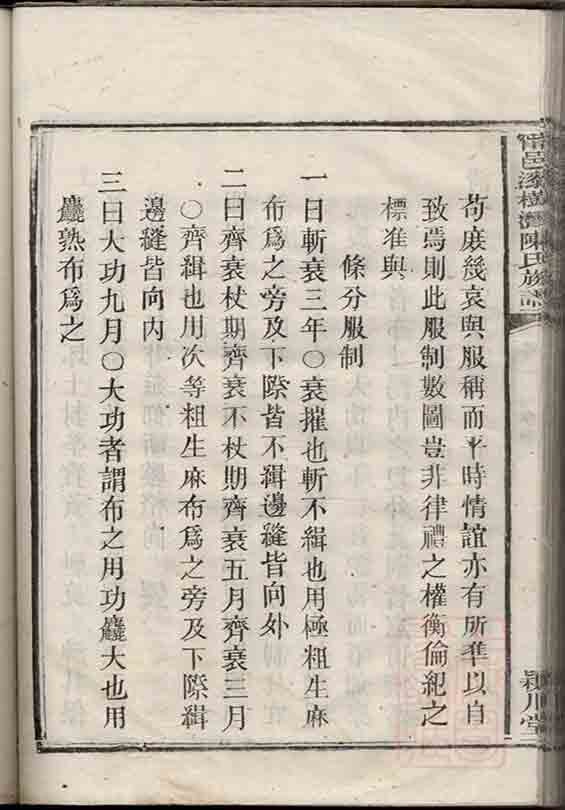 苟庶幾哀與服稱而平時情誼亦有所準以自
致焉則此服制數圖豈非律禮之權衡倫紀之
標准與
條分服制
一曰斬衰三年〇衰摧也斬不緝也用極粗生麻
布爲之旁及下際皆不緝邊縫皆向外
二曰齊衰杖期齊衰不杖期齊衰五月齊衰三月
〇齊緝也用次等粗生麻布爲之旁及下際緝
邊縫皆向內
三曰大功九月〇大功者謂布之用功麤大也用
麤熟布爲之
邑漆樹灣陳氏族譜
潁川堂